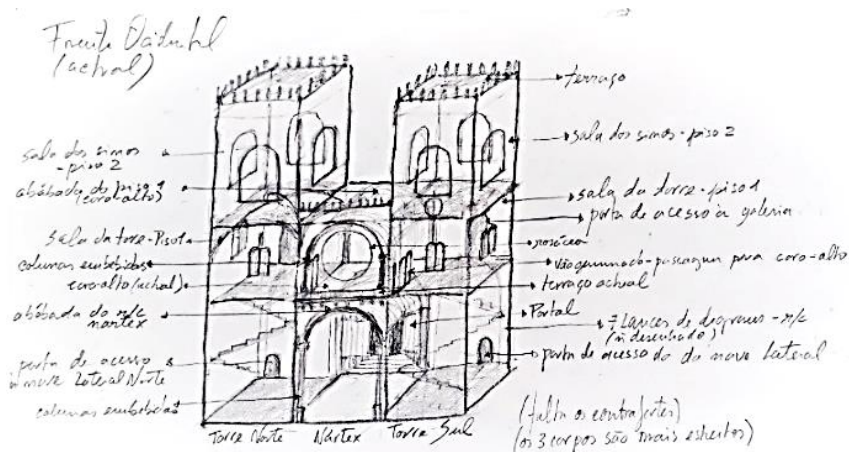 Frente Ocidental
(actual)
sala dos sinos
-piso 2
abóbada do piso 1
(coro alto)
sala da torre-Piso1
colunas embebidas
coro alto (actual)
abóbada do r/c
nartex
porta de acesso
à nave Lateral Norte
colunas embebidas
terraço
sala dos sinos-piso 2
sala da torre-piso 1
porta de acesso à galeria
rosácea
vão geminado-passagem para coro-alto
terraço actual
Portal
7 Lances de degraus-r/c
(ñ desenhado)
porta de acesso do da nave Lateral
Torre Norte Nártex Torre Sul
(falta os contrafortes)
(os 3 corpos são mais estreitos)